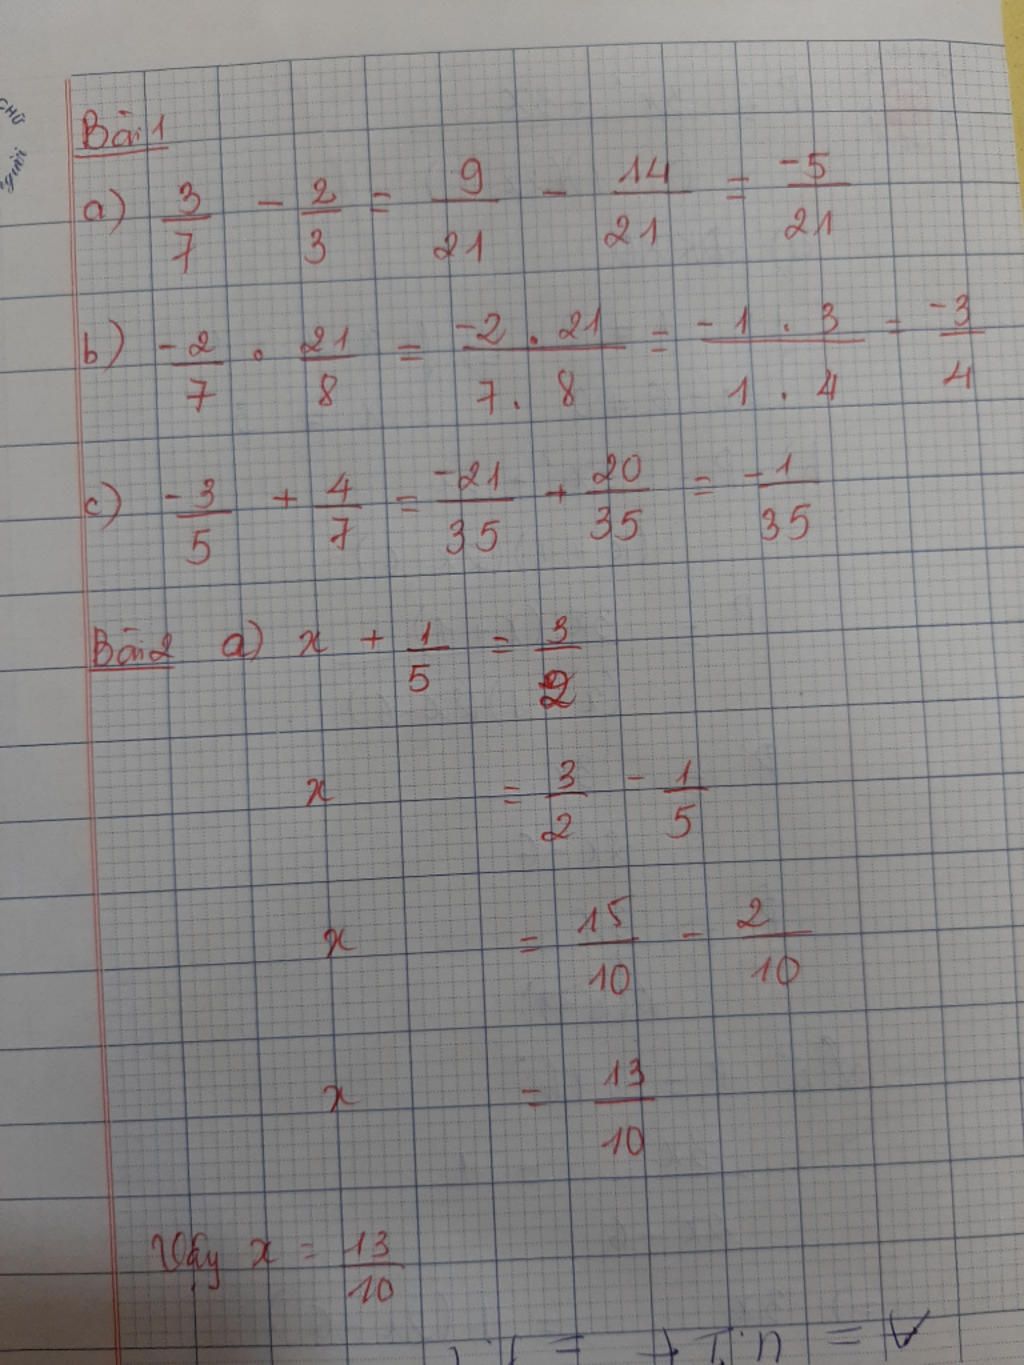 CHỮ
Bài 1
a) 3/7 - 2/3 = 9/21 - 14/21 = -5/21
b) -2/7 . 21/8 = -2 . 21/7 . 8 = -1 . 3/1 . 4 = -3/4
c) -3/5 + 4/7 = -21/35 + 20/35 = -1/35
Bài 2 a) x + 1/5 = 3/2
x = 3/2 - 1/5
x = 15/10 - 2/10
x = 13/10
Vậy x = 13/10